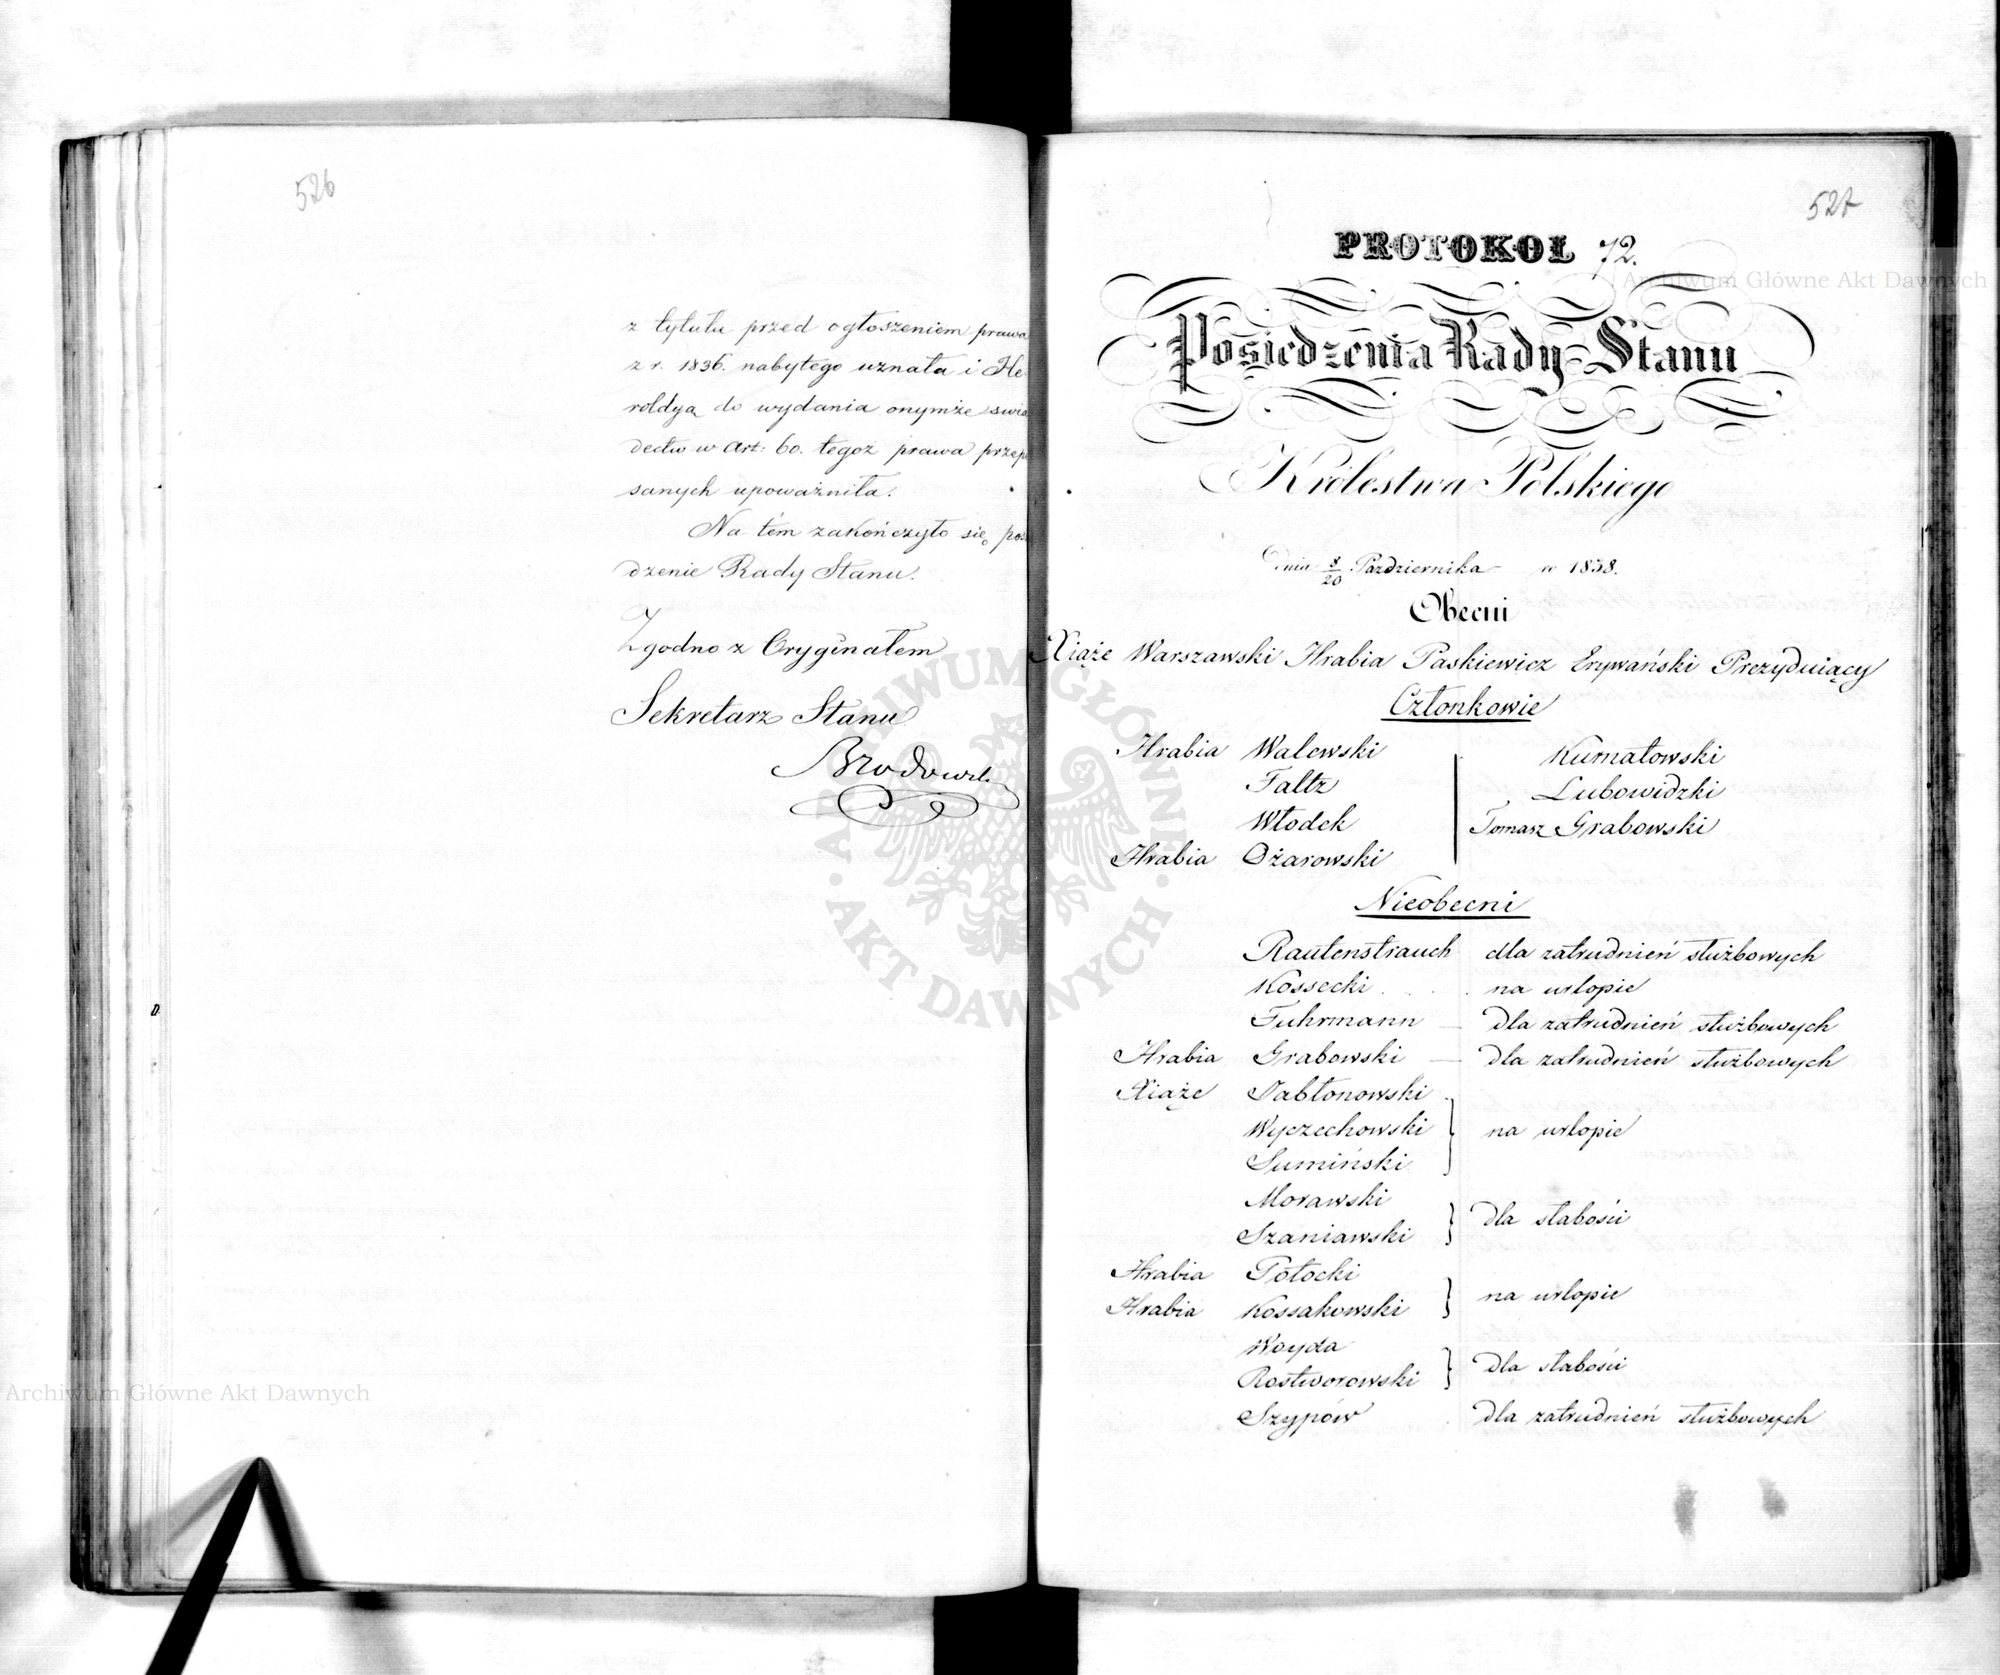 526
z tytułu przed ogłoszeniem prawa
z r. 1836. nabytego uznała i He-
roldyą do wydania onymże świa
dectw w Art: 60. tegoż prawa przep
sanych upoważniła.
Na tém zakończyło się pos
dzenie Rady Stanu.
Zgodno z Oryginałem
Sekretarz Stanu
527
PROTOKOŁ 72.
Posiedzenia Rady Stanu
Królestwa Polskiego
Dnia 8/20 Października w 1838.
Obecni
Xiąże Warszawski Hrabia Paskiewicz Erywański Prezyduiący
Członkowie
Hrabia Walewski
Faltz
Włodek
Hrabia Ożarowski
Kurnatowski
Lubowidzki
Tomasz Grabowski
Nieobecni
Rautenstrauch dla zatrudnień służbowych
Kossecki na urlopie
Fuhrmann — dla zatrudnień służbowych
Hrabia Grabowski — dla zatrudnień służbowych
Xiąże Jabłonowski
Wyczechowski na urlopie
Sumiński
Morawski
Szaniawski dla słabości
Hrabia Potocki
Hrabia Kossakowski na urlopie
Woyda
Rostworowski dla słabości
Szypów dla zatrudnień służbowych
Archiwum Główne Akt Dawnych
Archiwum Główne Akt Dawnych
ARCHIWUM GŁÓWNE • AKT DAWNYCH •